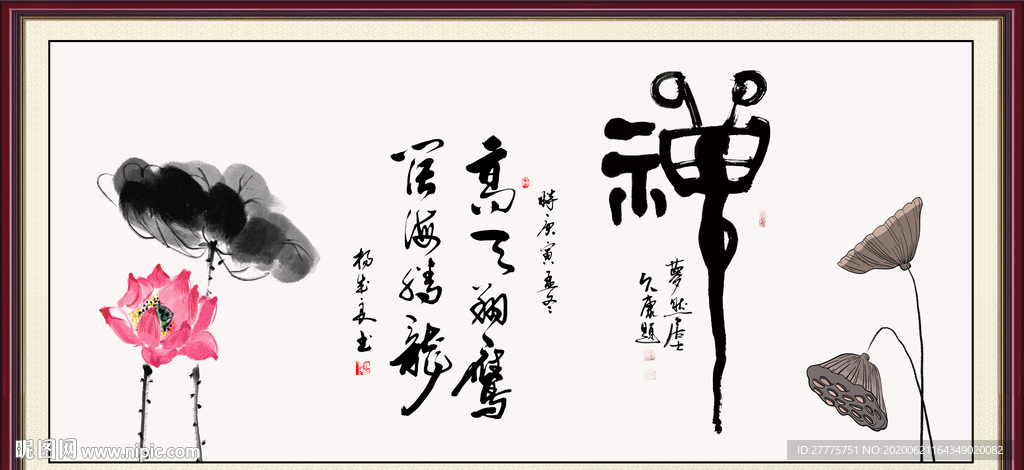 禅
夢然居士
久康題
時庚寅孟冬
高天翔鷹
闊海騰龍
楊成良书
昵图网 www.nipic.com
ID:27775751 NO:20200621164349020082